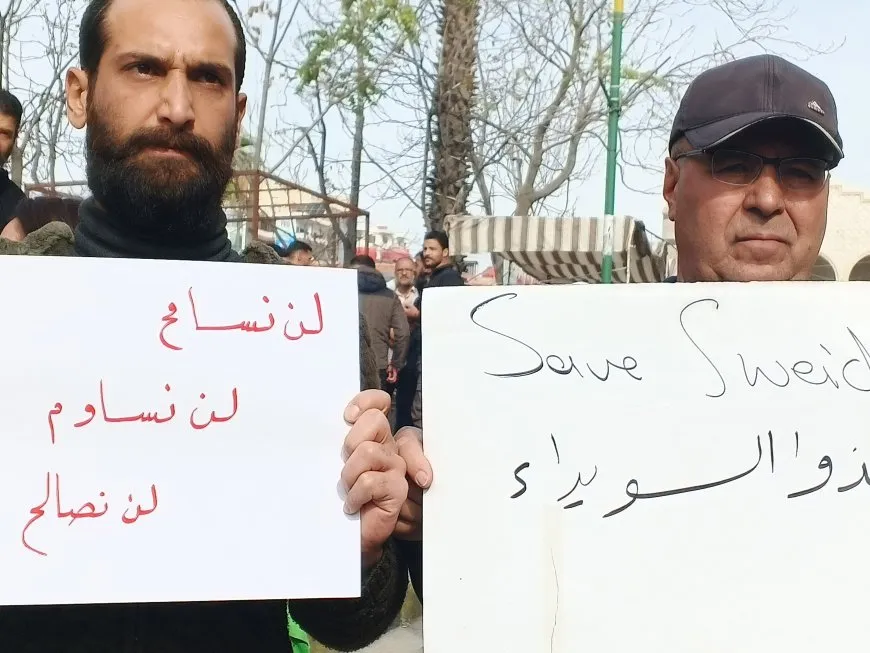 لن نسامح
لن نساوم
لن نصالح
Save Sweid
ذوا السويداء